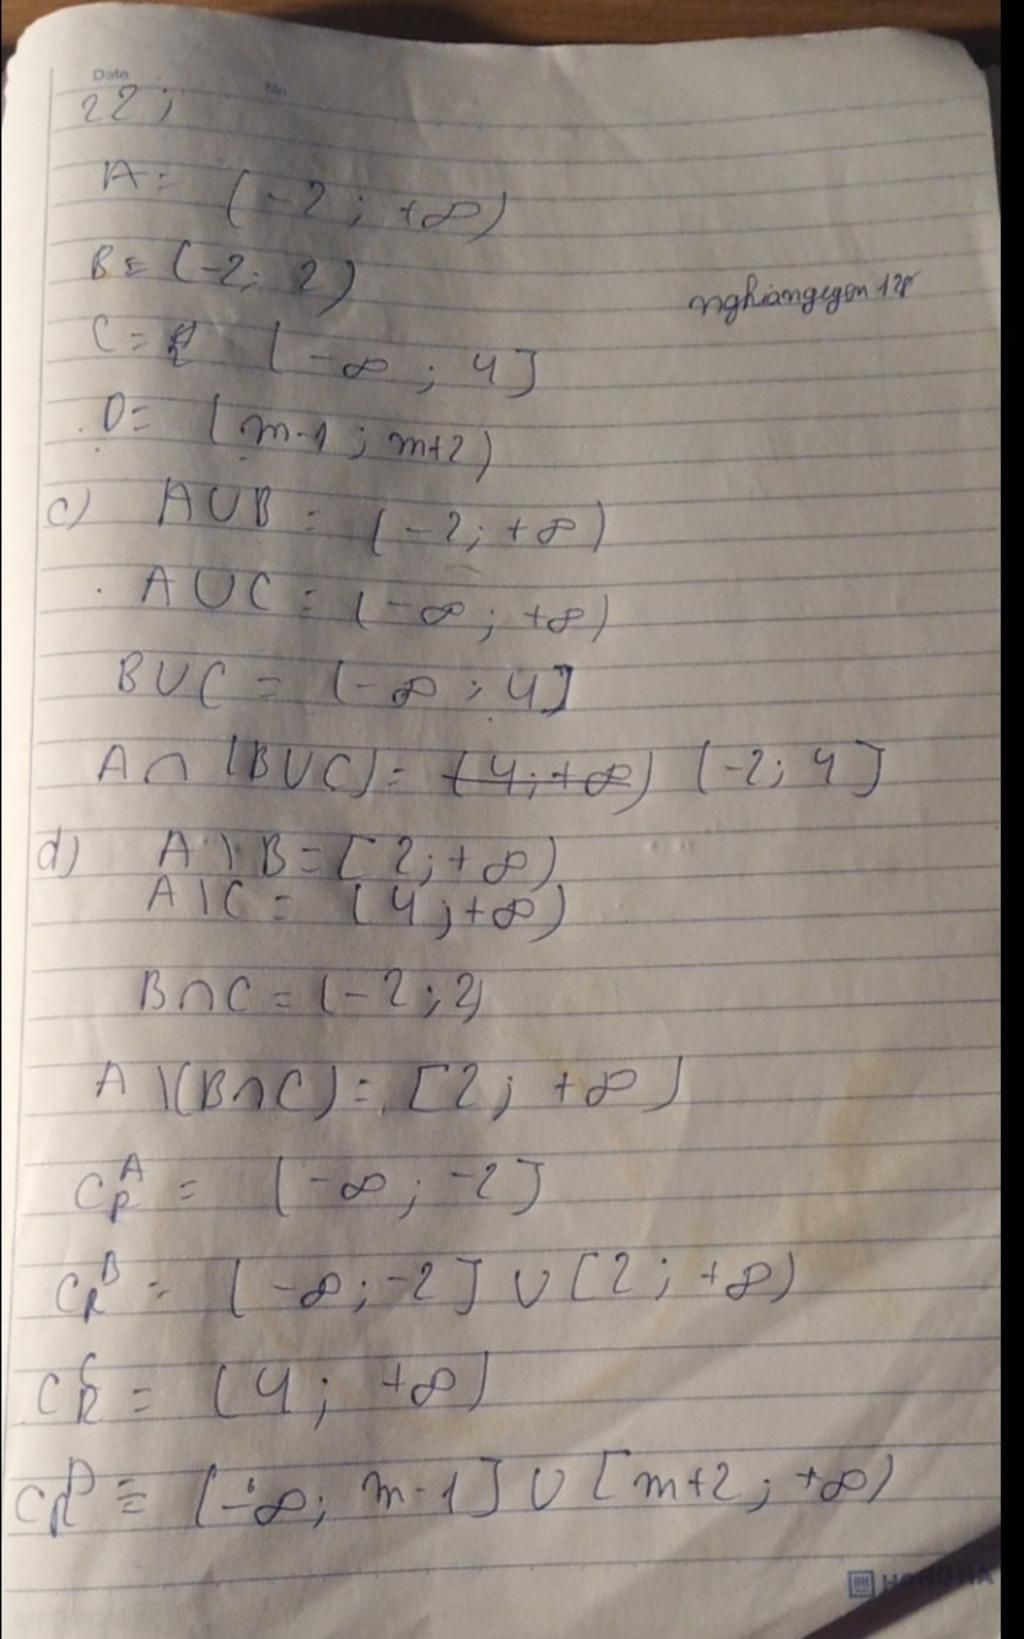 Date
No
22;
A = (-2; +∞)
B = (-2; 2)
nghiangegon 12
C = (-∞; 4]
D = (m-1; m+2)
c) A∪B = (-2; +∞)
A∪C = (-∞; +∞)
B∪C = (-∞; 4]
A∩(B∪C) = (4; +∞) (-2; 4]
d) A\B = [2; +∞)
A\C = (4; +∞)
B∩C = (-2; 2)
A\(B∩C) = [2; +∞)
C_R^A = (-∞; -2]
C_R^B = (-∞; -2] ∪ [2; +∞)
C_R^C = (4; +∞)
C_R^D = (-∞; m-1] ∪ [m+2; +∞)
HONG HA